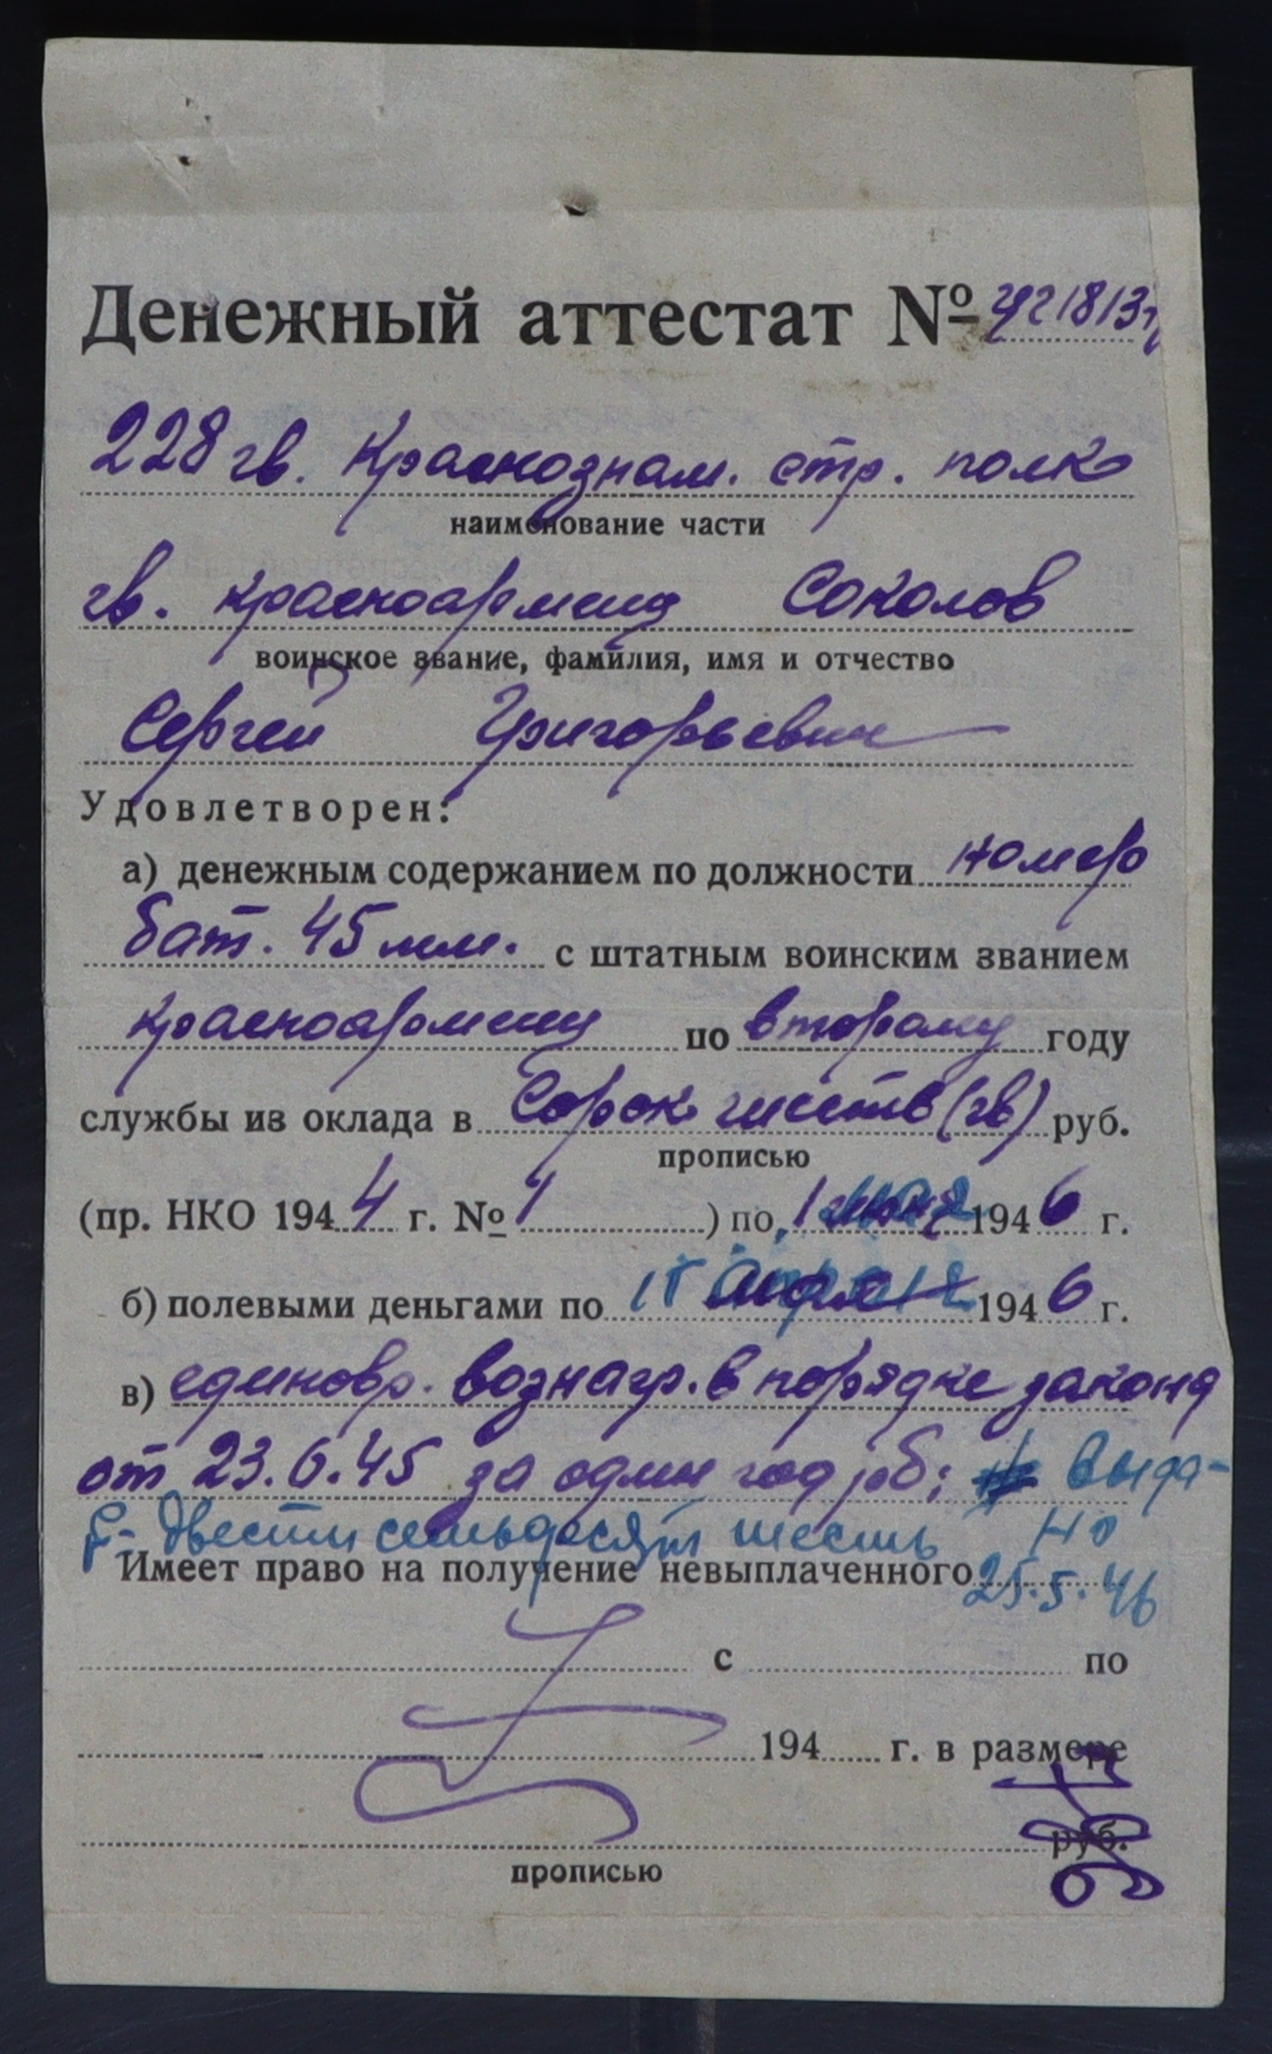 Денежный аттестат №
228 гв. Краснознам. стр. полк
наименование части
гв. красноармеец Соколов
воинское звание, фамилия, имя и отчество
Сергей Григорьевич
Удовлетворен:
а) денежным содержанием по должности номер
бат. 45 мм. с штатным воинским званием
красноармеец по второму году
службы из оклада в Сорок шесть (гв) руб.
прописью
(пр. НКО 1944 г. № 1 ) по 1 мая 1946 г.
б) полевыми деньгами по 15 апреля 1946 г.
в) единовр. вознагр. в порядке закона
от 23.6.45 за один год рб; выда-
Двести семьдесят шесть но
Имеет право на получение невыплаченного 25.5.46
с по
194 г. в размере
руб.
прописью